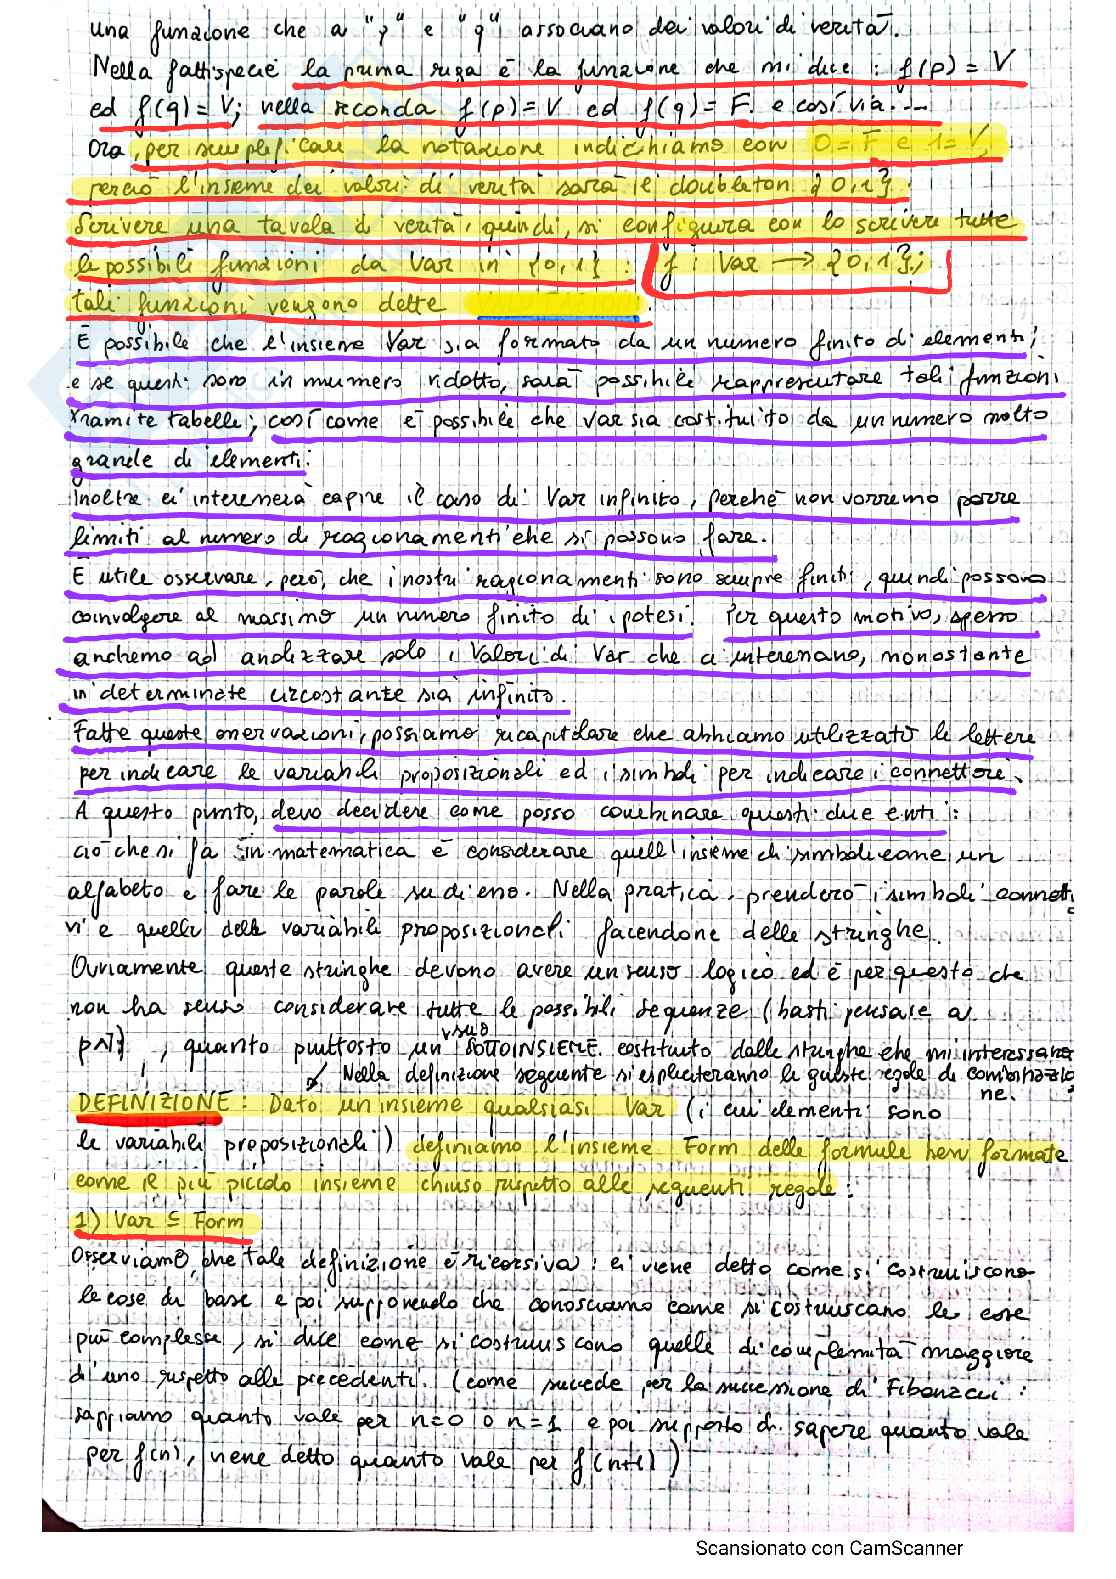 una funzione che a "p" e "q" associano dei valori di verità.
Nella fattispecie la prima riga è la funzione che mi dice : f(p) = V
ed f(q) = V; nella seconda f(p) = V ed f(q) = F. e così via...
Ora, per semplificare la notazione indichiamo con 0 = F e 1 = V,
perciò l'insieme dei valori di verità sarà il doubleton {0,1}.
Scrivere una tavola di verità, quindi, si configura con lo scrivere tutte
le possibili funzioni da Var in {0,1} : f : Var → {0,1};
tali funzioni vengono dette .
È possibile che l'insieme Var sia formato da un numero finito di elementi;
e se questi sono in numero ridotto, sarà possibile rappresentare tali funzioni
tramite tabelle; così come è possibile che Var sia costituito da un numero molto
grande di elementi.
Inoltre ci interesserà capire il caso di Var infinito, perché non vorremo porre
limiti al numero di ragionamenti che si possono fare.
È utile osservare, però, che i nostri ragionamenti sono sempre finiti, quindi possono
coinvolgere al massimo un numero finito di ipotesi. Per questo motivo, spesso
andremo ad analizzare solo i valori di Var che ci interessano, nonostante
in determinate circostante sia infinito.
Fatte queste osservazioni, possiamo ricapitolare che abbiamo utilizzato le lettere
per indicare le variabili proposizionali ed i simboli per indicare i connettori.
A questo punto, devo decidere come posso combinare questi due enti :
ciò che si fa in matematica è considerare quell'insieme di simboli come un
alfabeto e fare le parole su di esso. Nella pratica, prenderò i simboli connetti
vi e quelli delle variabili proposizionali facendone delle stringhe.
Ovviamente queste stringhe devono avere un senso logico ed è per questo che
non ha senso considerare tutte le possibili sequenze (basti pensare a
, quanto piuttosto un SOTTOINSIEME costituito dalle stringhe che mi interessano
Nella definizione seguente si espliciteranno le queste regole di combinazio
ne.
DEFINIZIONE : Dato un insieme qualsiasi Var (i cui elementi sono
le variabili proposizionali) definiamo l'insieme Form delle formule ben formate
come il più piccolo insieme chiuso rispetto alle seguenti regole :
1) Var ⊆ Form
Osserviamo che tale definizione è ricorsiva : ci viene detto come si costruiscono
le cose di base e poi supponendo che conosciamo come si costruiscano le cose
più complesse, si dice come si costruiscono quelle di complessità maggiore
di uno rispetto alle precedenti. (come succede per la successione di Fibonacci :
sappiamo quanto vale per n=0 o n=1 e poi supposto di sapere quanto vale
per f(n), viene detto quanto vale per f(n+1) )
Scansionato con CamScanner